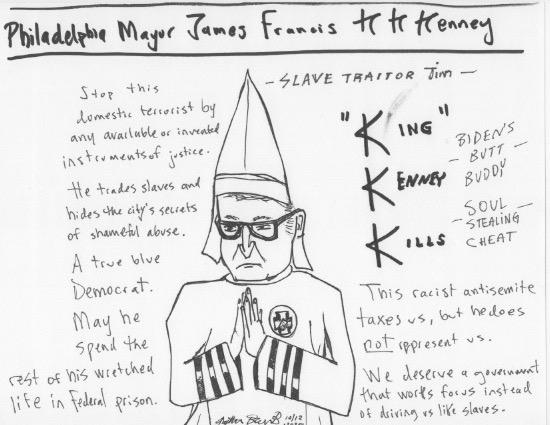 Philadelphia Mayor James Francis KKKenney
Stop this
domestic terrorist by
any available or invented
instruments of justice.
He trades slaves and
hides the city's secrets
of shameful abuse.
A true blue
Democrat.
May he
spend the
rest of his wretched
life in federal prison.
- SLAVE TRAITOR Jim -
"KING"
KENNEY
KILLS
BIDEN'S
- BUTT -
BUDDY
SOUL -
- STEALING
CHEAT
This racist antisemite
taxes us, but he does
not represent us.
We deserve a government
that works for us instead
of driving us like slaves.
10/12